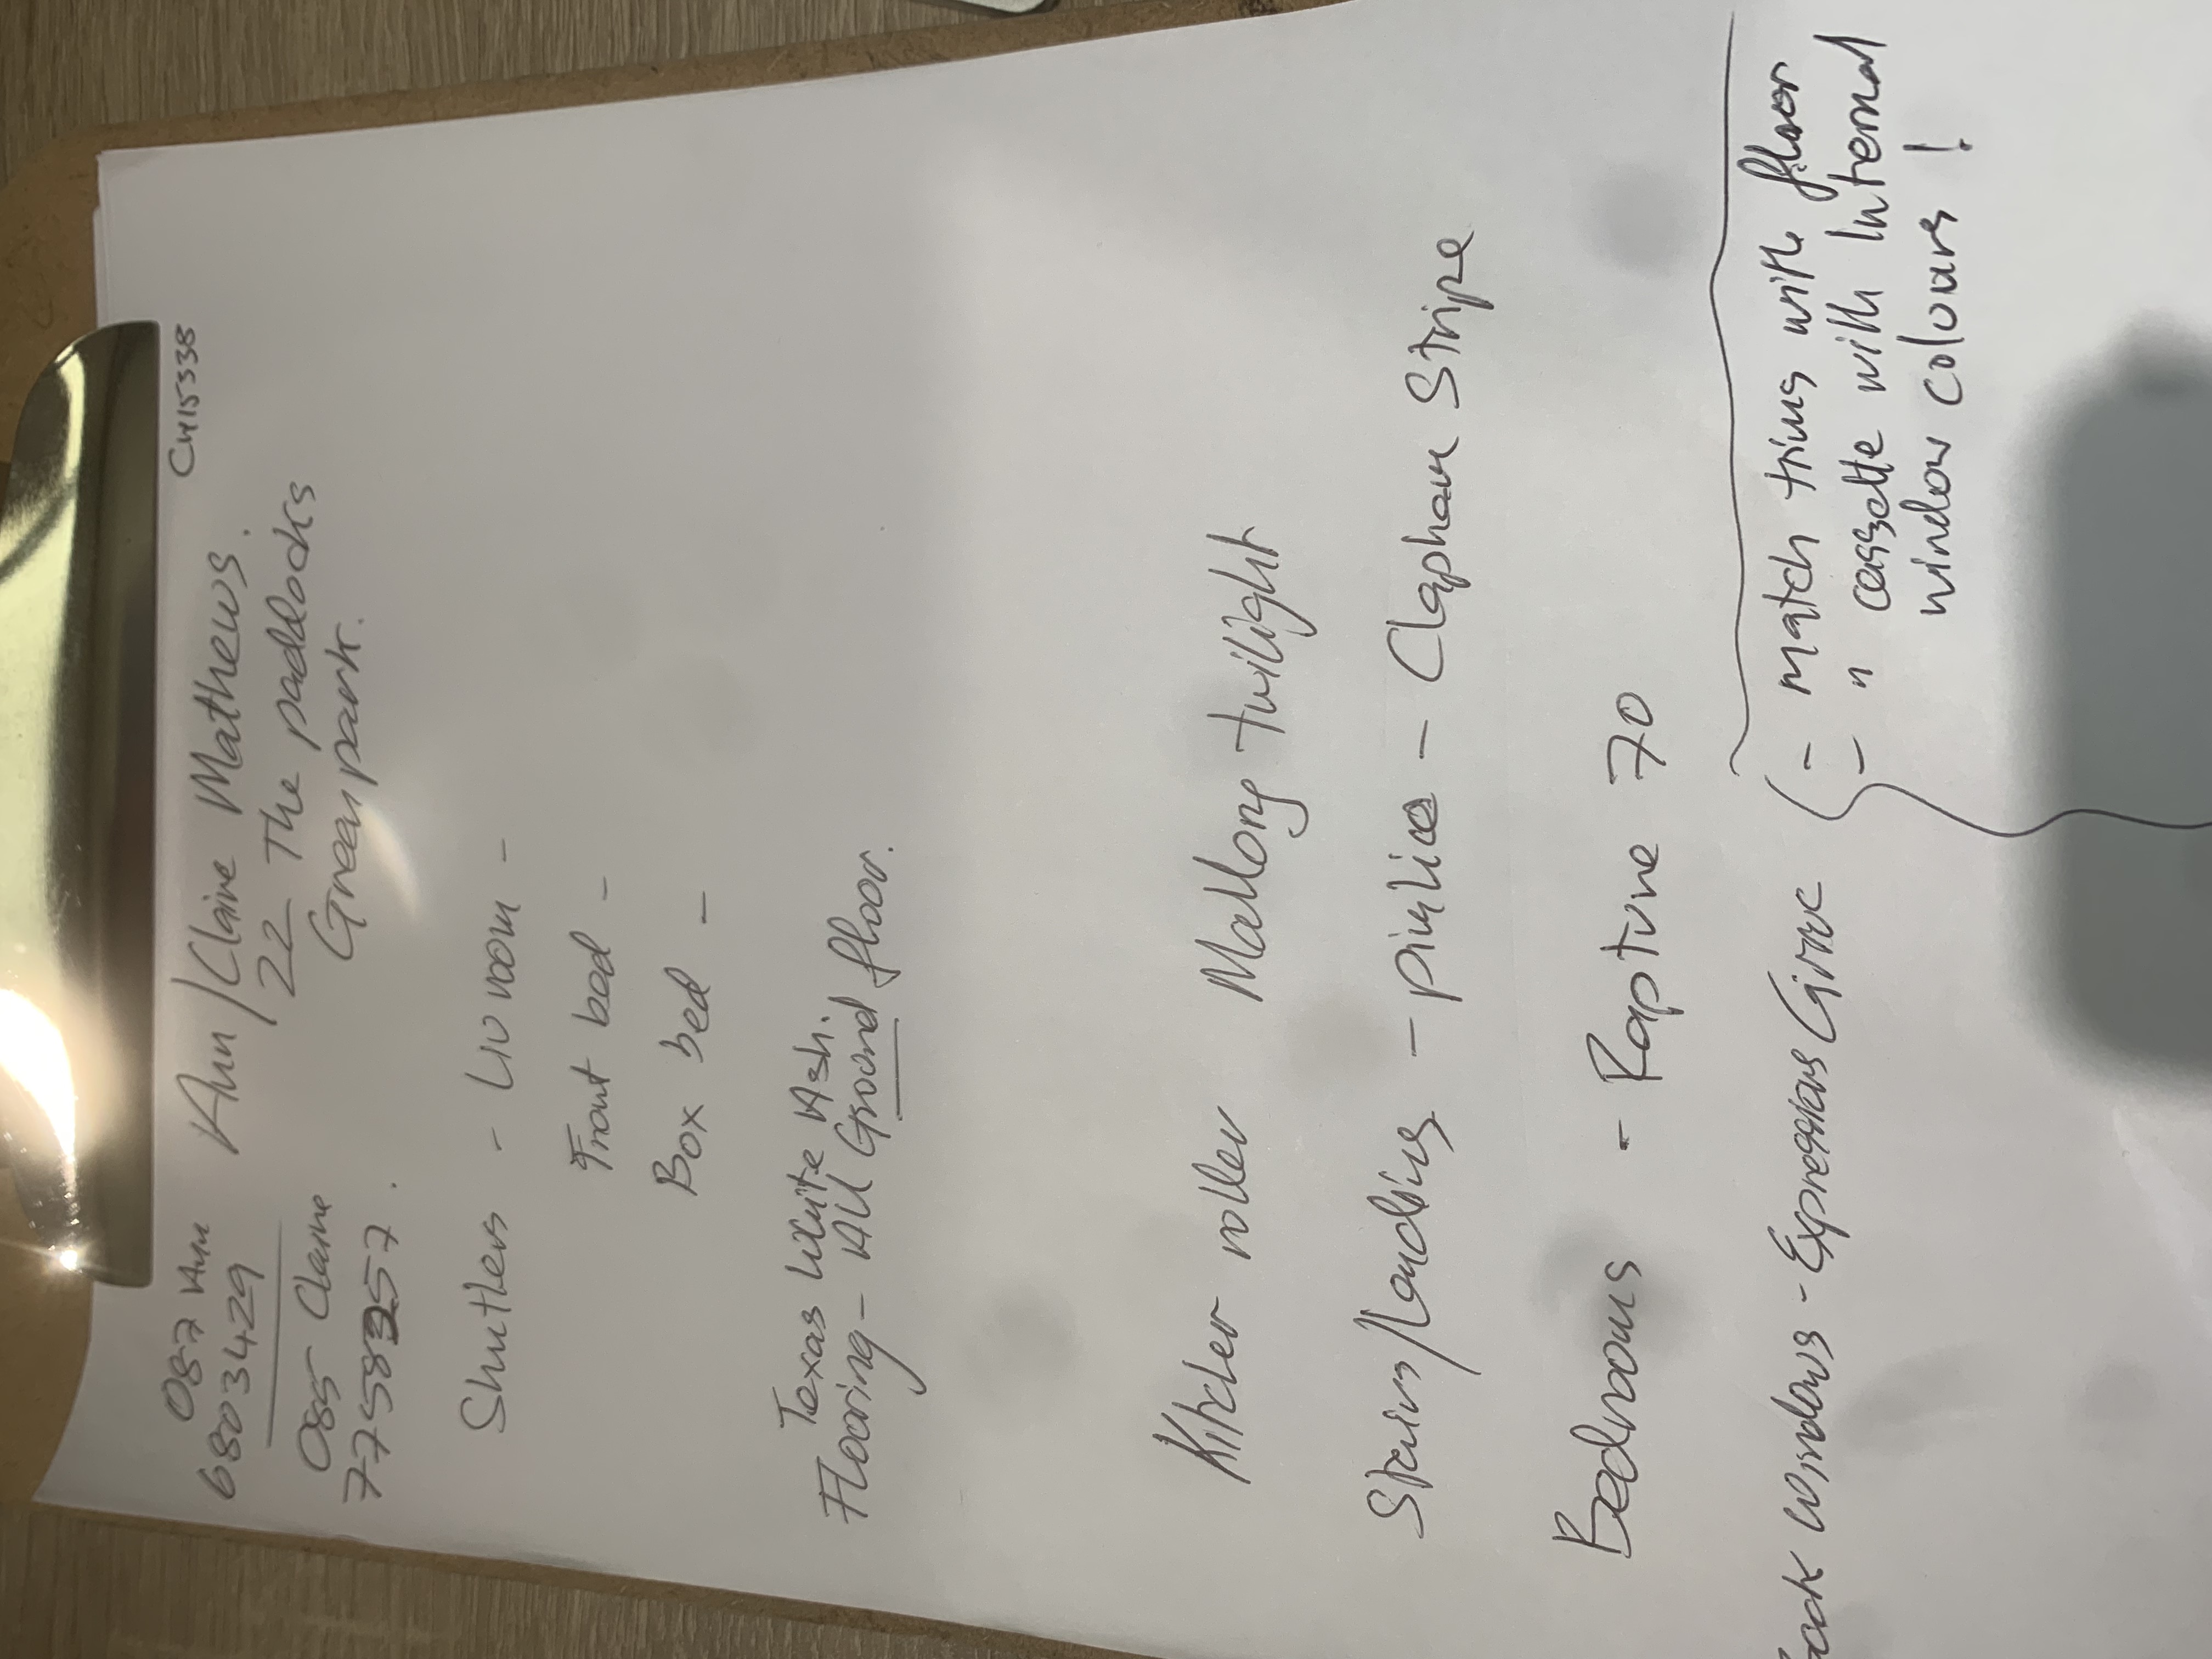 CH15338
087 Ann
6803429
Ann/Claire Mathews.
22 The paddocks
Greenpark.
085 Claire
7758357.
Shutters - Liv room -
Front bed -
Box bed -
Texas White Ash.
Flooring - All Ground floor.
Kitchen roller Mallong twilight
Stairs/landing - pimlico - Clapham Stripe
Bedrooms - Rapture 70
Back windows - Expressions
- match trims with floor
- " cassette with internal
window colours!